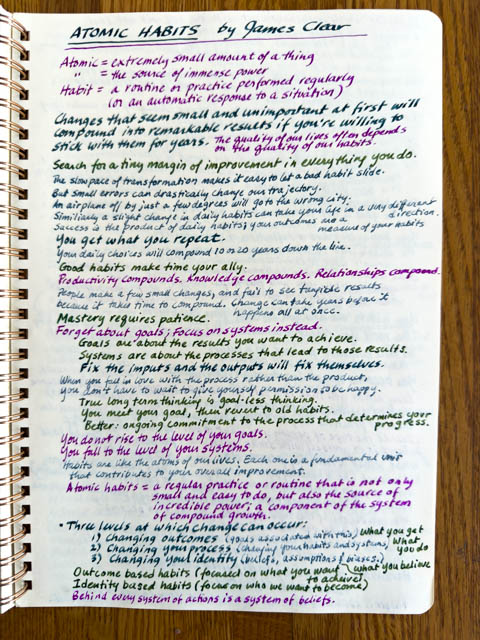 ATOMIC HABITS by James Clear
Atomic = extremely small amount of a thing
" = the source of immense power
Habit = a routine or practice performed regularly
(or an automatic response to a situation)
Changes that seem small and unimportant at first will
compound into remarkable results if you're willing to
stick with them for years. The quality of our lives often depends
on the quality of our habits.
Search for a tiny margin of improvement in everything you do.
The slow pace of transformation makes it easy to let a bad habit slide.
But small errors can drastically change our trajectory.
An airplane off by just a few degrees will go to the wrong city.
Similarly a slight change in daily habits can take your life in a very different
direction.
Success is the product of daily habits; your outcomes are a
measure of your habits
You get what you repeat.
Your daily choices will compound 10 or 20 years down the line.
Good habits make time your ally.
Productivity compounds. Knowledge compounds. Relationships compound.
People make a few small changes, and fail to see tangible results
because it takes time to compound. Change can take years before it
happens all at once.
Mastery requires patience.
Forget about goals; Focus on systems instead.
Goals are about the results you want to achieve.
Systems are about the processes that lead to those results.
Fix the inputs and the outputs will fix themselves.
When you fall in love with the process rather than the product,
you don't have to wait to give yourself permission to be happy.
True long term thinking is goal-less thinking.
You meet your goal, then revert to old habits.
Better: ongoing commitment to the process that determines your
progress.
You do not rise to the level of your goals.
You fall to the level of your systems.
Habits are like the atoms of our lives. Each one is a fundamental unit
that contributes to your overall improvement.
Atomic habits = a regular practice or routine that is not only
small and easy to do, but also the source of
incredible power; a component of the system
of compound growth.
• Three levels at which change can occur:
1) Changing outcomes (goals associated with this) What you get
2) Changing your process (changing your habits and systems) What
you do
3) Changing your identity (beliefs, assumptions & biases) what you believe
Outcome based habits (focused on what you want
to achieve)
Identity based habits (focus on who we want to become)
Behind every system of actions is a system of beliefs.